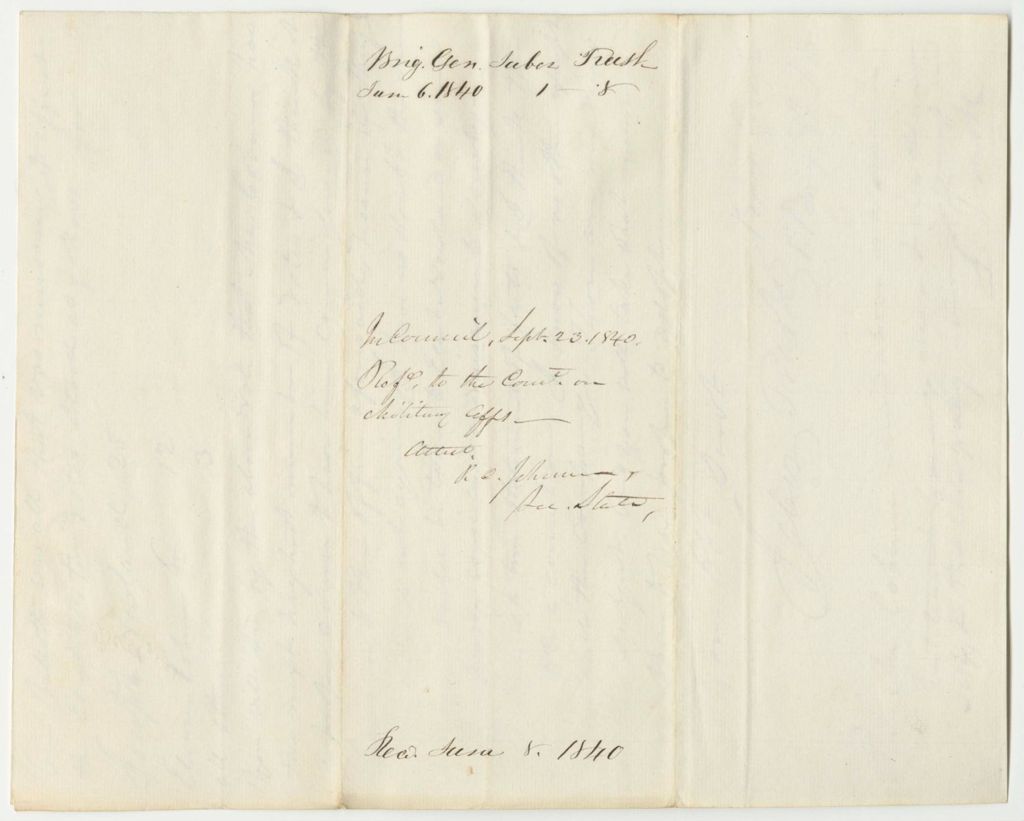 Brig. Gen. Jabez True
June 6. 1840 1 — 8
In Council, Sept. 23. 1840.
Refd. to the Comt. on
Military Affs —
Attest.
P. C. Johnson,
Sec. State,
Recd. June 8. 1840